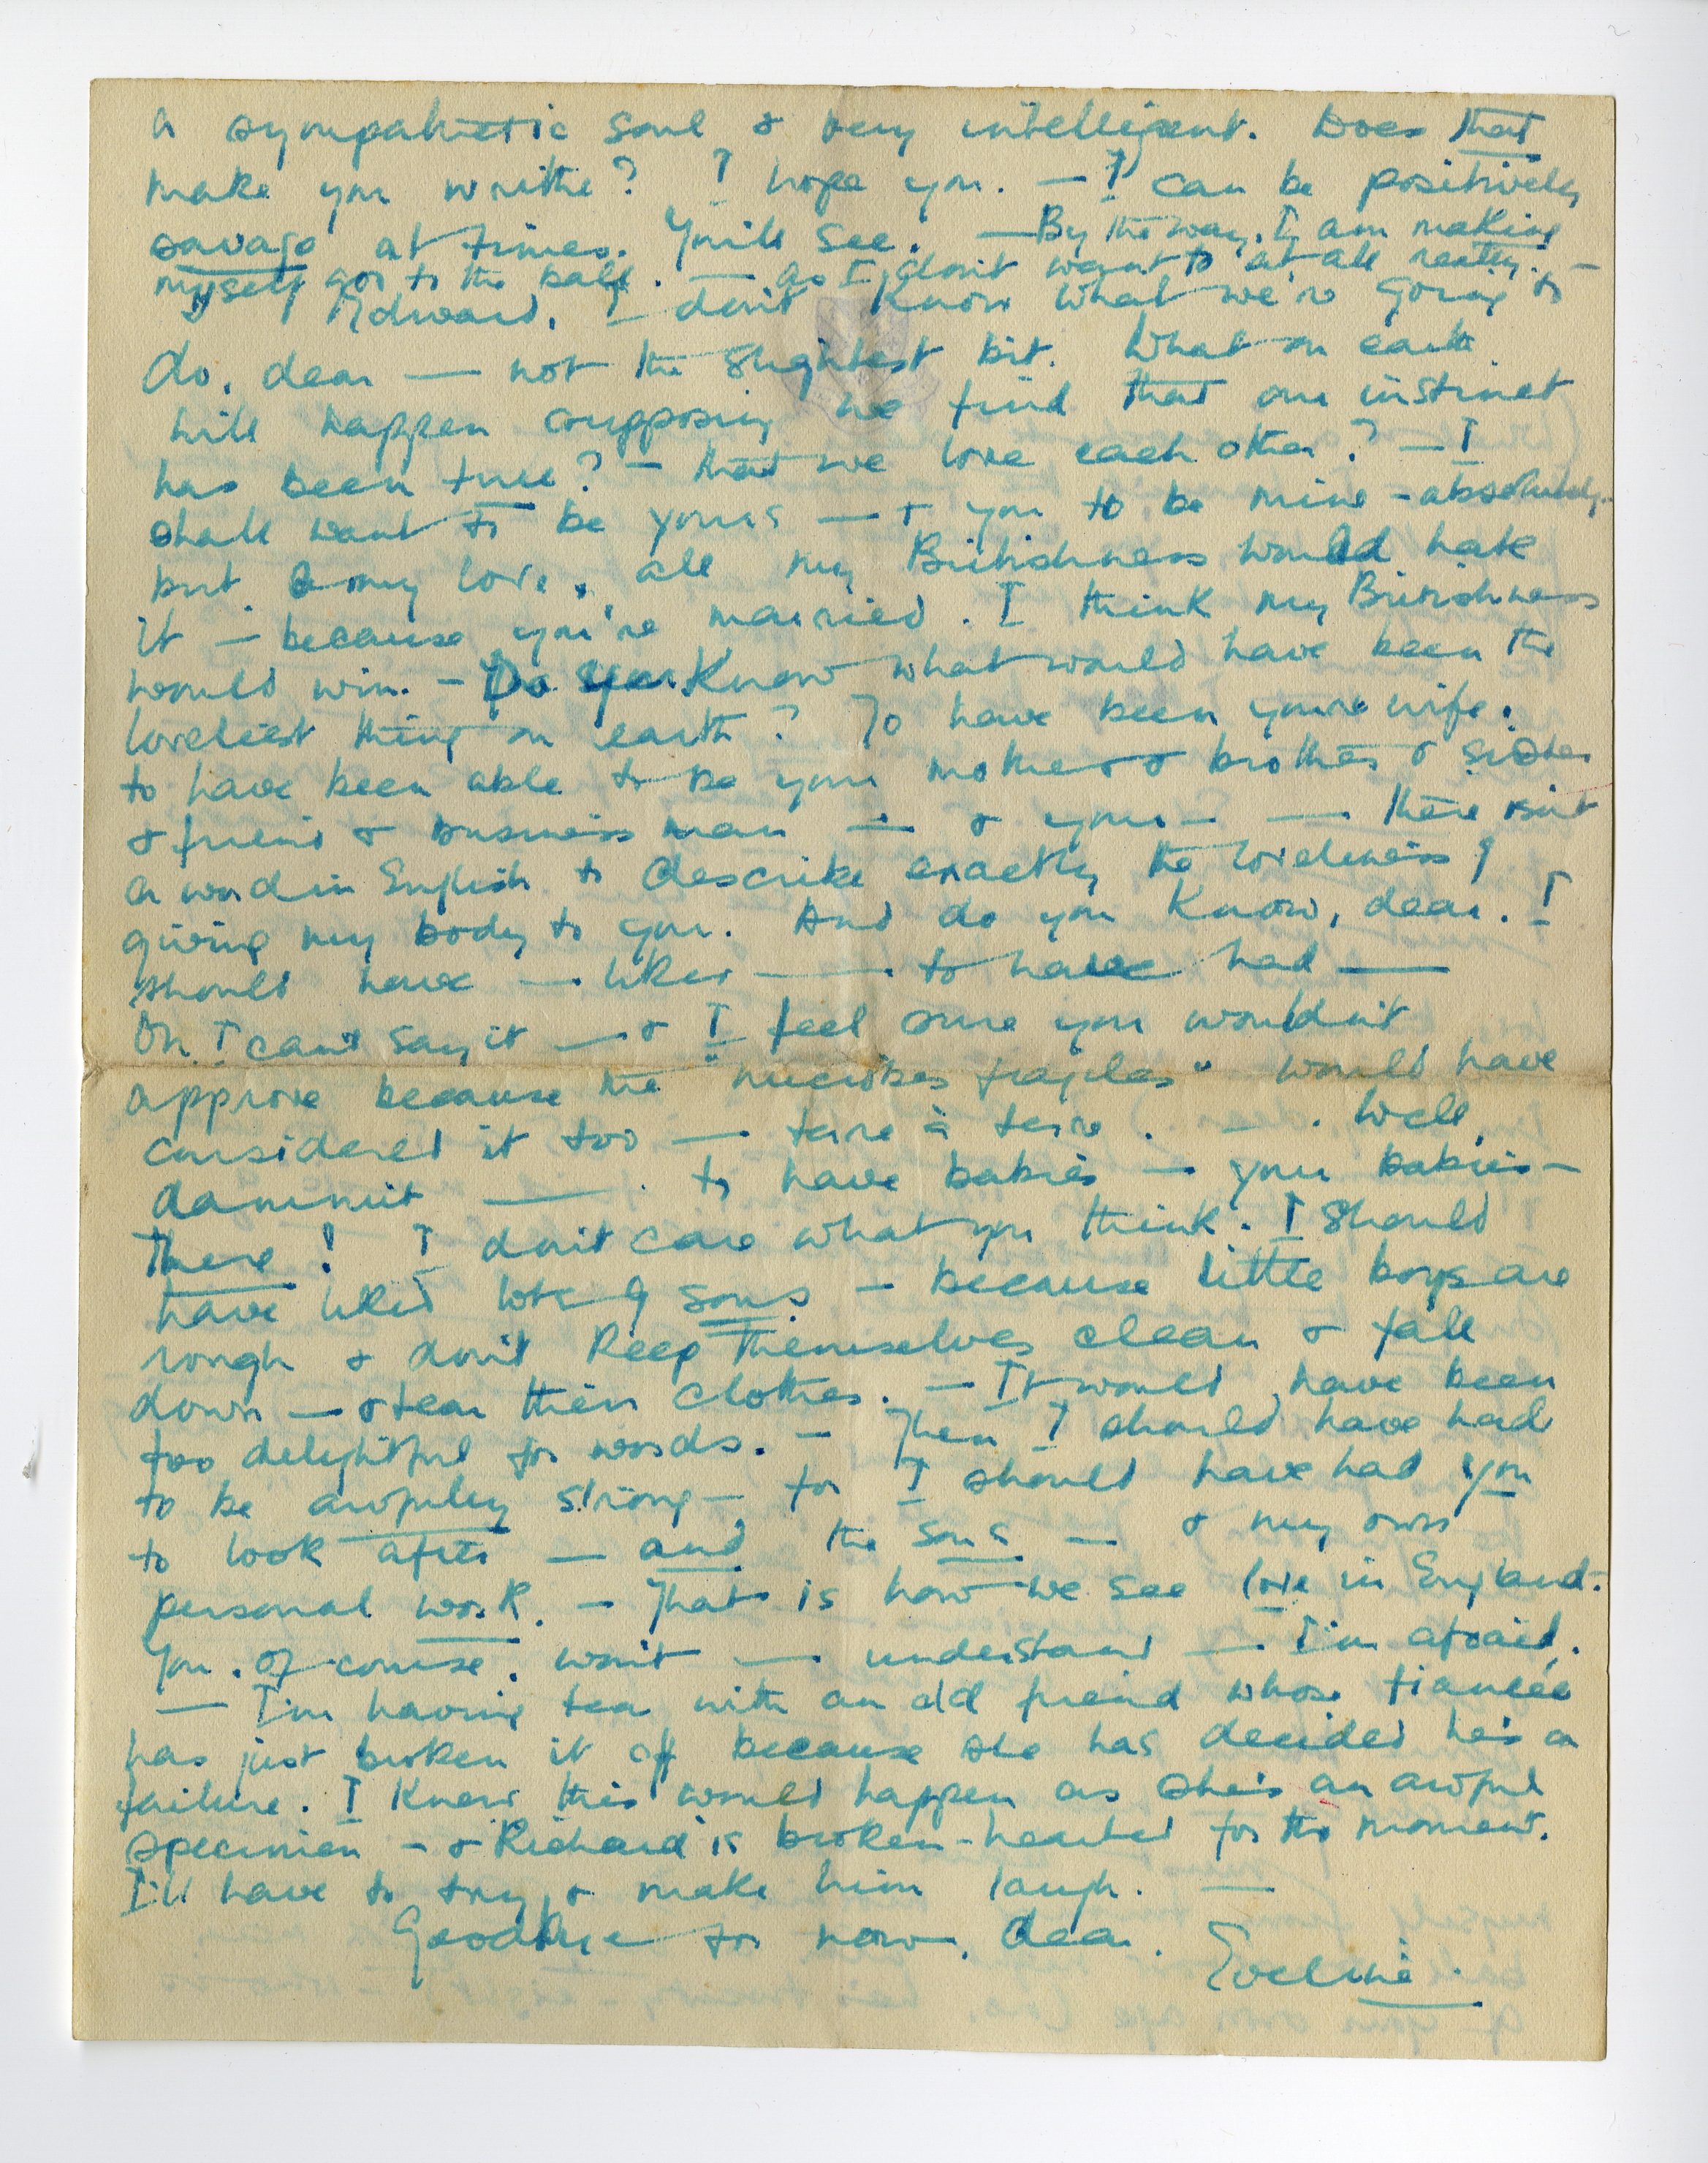 a sympathetic soul & very intelligent. Does that
make you writhe? I hope you. — I can be positively
savage at times. You'll see. — By the way, I am making
myself go to the ball. — as I don't want to at all really. —
Edward, I don't know what we're going to
do, dear — not the slightest bit. What on earth
will happen supposing we find that our instinct
has been true? — that we love each other? — I
shall want to be yours — & you to be mine - absolutely.
but, my love, all my Britishness would hate
it — because you're married. I think my Britishness
would win. — Do you know what would have been the
loveliest thing on earth? To have been your wife.
to have been able to be your mother & brother & sister
& friend & business man — & your — — there isn't
a word in English to describe exactly the loveliness of
giving my body to you. And do you know, dear. I
should have — liked — to have had —
Oh I can't say it — & I feel sure you wouldn't
approve because the " fragiles" would have
considered it too — terre à terre. — . Well,
dammit — . to have babies — your babies —
There! I don't care what you think. I should
have liked lots of sons — because little boys are
rough & don't keep themselves clean & fall
down — & tear their clothes. — It would have been
too delightful for words. — Then I should have had
to be awfully strong — for I should have had you
to look after — and the sons — & my own
personal work. — That is how we see love in England.
You, of course, won't — understand — I'm afraid.
— I'm having tea with an old friend whose fiancée
has just broken it off because she has decided he's a
failure. I knew this would happen as she's an awful
specimen — & Richard is broken-hearted for the moment.
I'll have to try & make him laugh. —
Goodbye for now, dear.
Eveline.